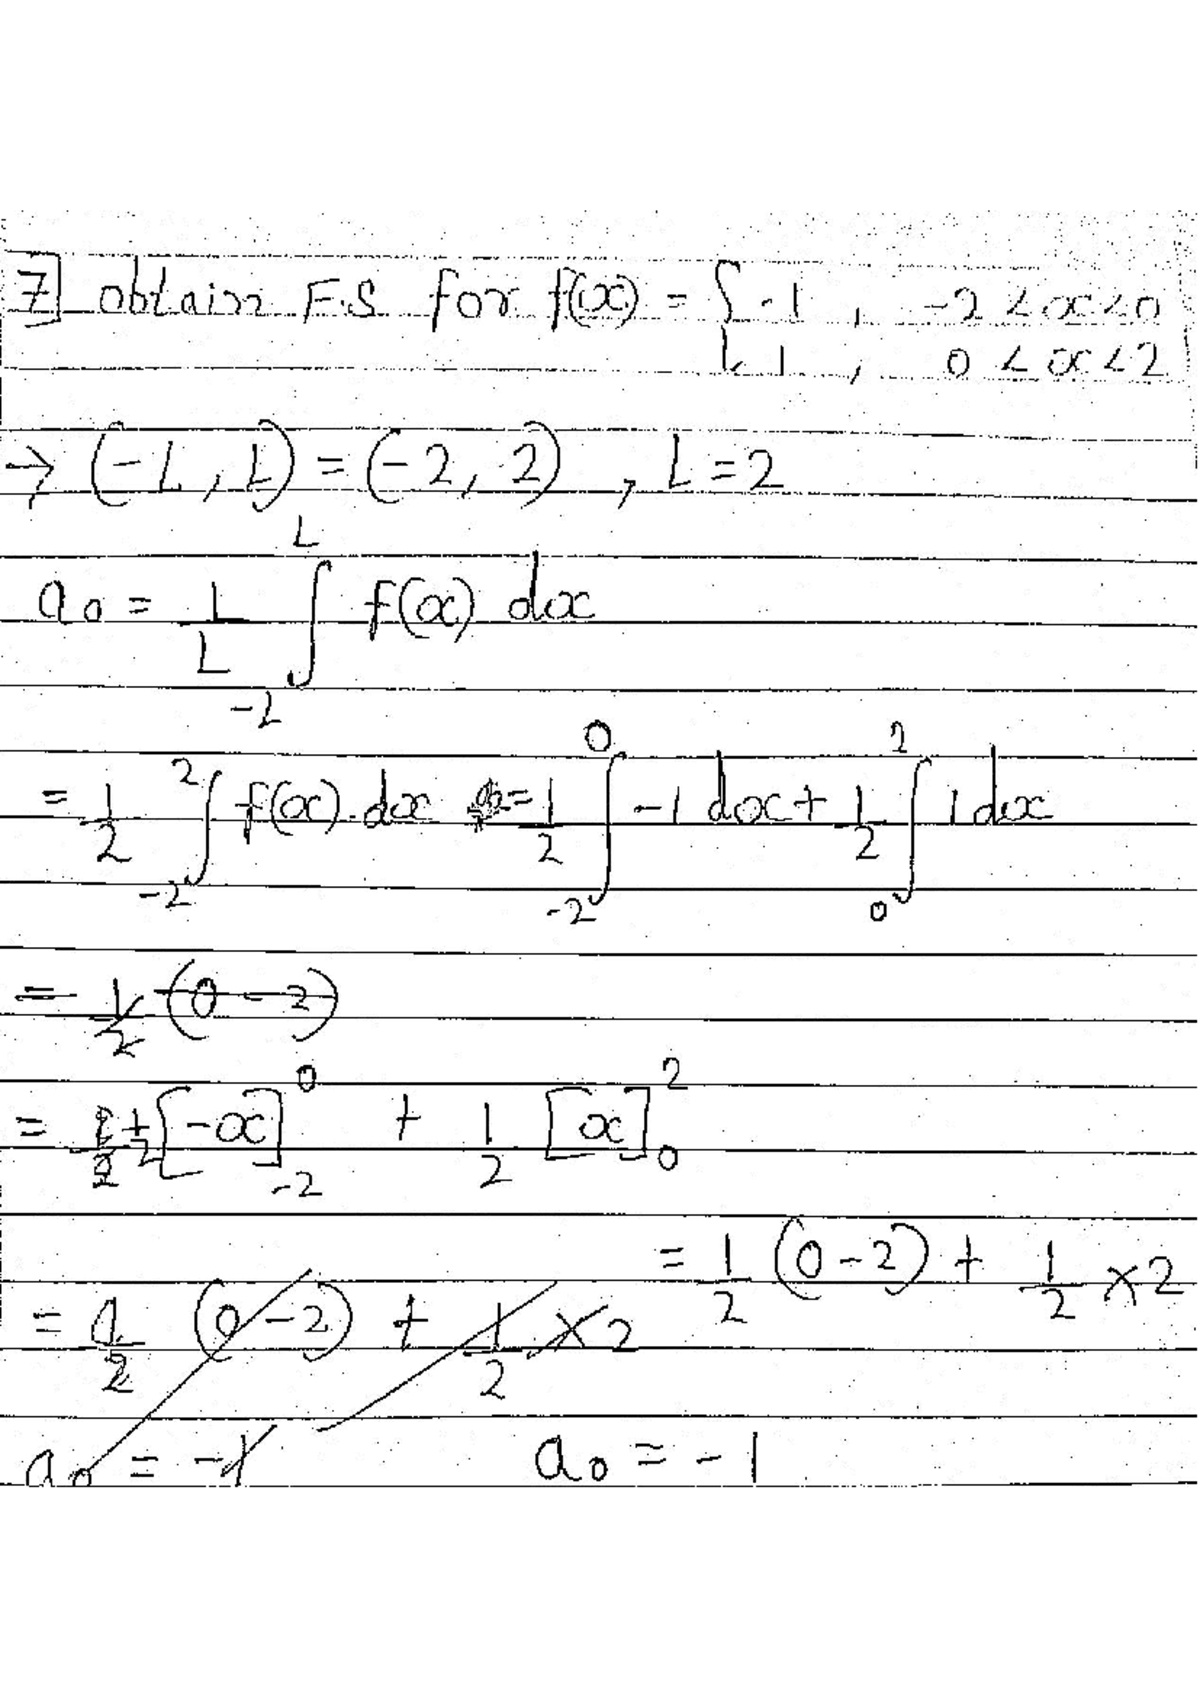 7] obtain F.S for f(x) = { -1 , -2 < x < 0
1 , 0 < x < 2
→ (-L, L) = (-2, 2) , L = 2
a₀ = 1/L ∫_{-L}^{L} f(x) dx
= 1/2 ∫_{-2}^{2} f(x).dx = 1/2 ∫_{-2}^{0} -1 dx + 1/2 ∫_{0}^{2} 1 dx
= 1/2 (0 - 2)
= 1/2 [-x]_{-2}^{0} + 1/2 [x]_{0}^{2}
= 1/2 (0 - 2) + 1/2 × 2
= 1/2 (0 - 2) + 1/2 × 2
a₀ = -1 a₀ = -1